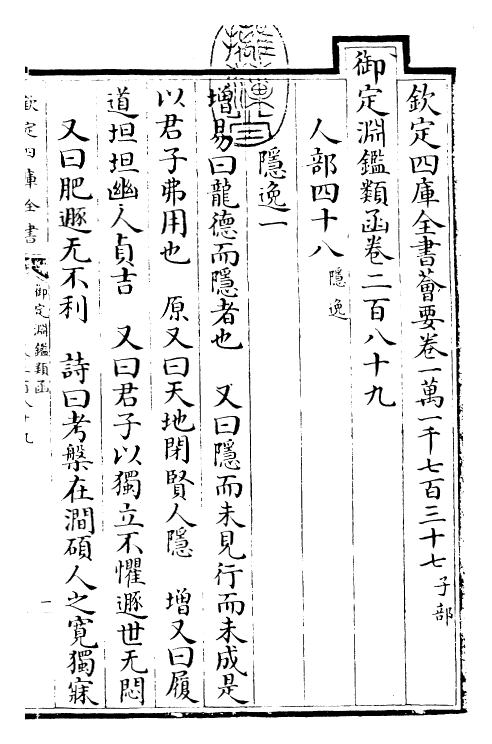 欽定四庫全書薈要卷一萬一千七百三十七 子部
御定淵鑑類函卷二百八十九
人部四十八 隱逸
隱逸一
增易曰龍德而隱者也 又曰隱而未見行而未成是
以君子弗用也 原又曰天地閉賢人隱 增又曰履
道坦坦幽人貞吉 又曰君子以獨立不懼遯世无悶
又曰肥遯无不利 詩曰考槃在澗碩人之寬獨寐
欽定四庫全書
御定淵鑑類函
一